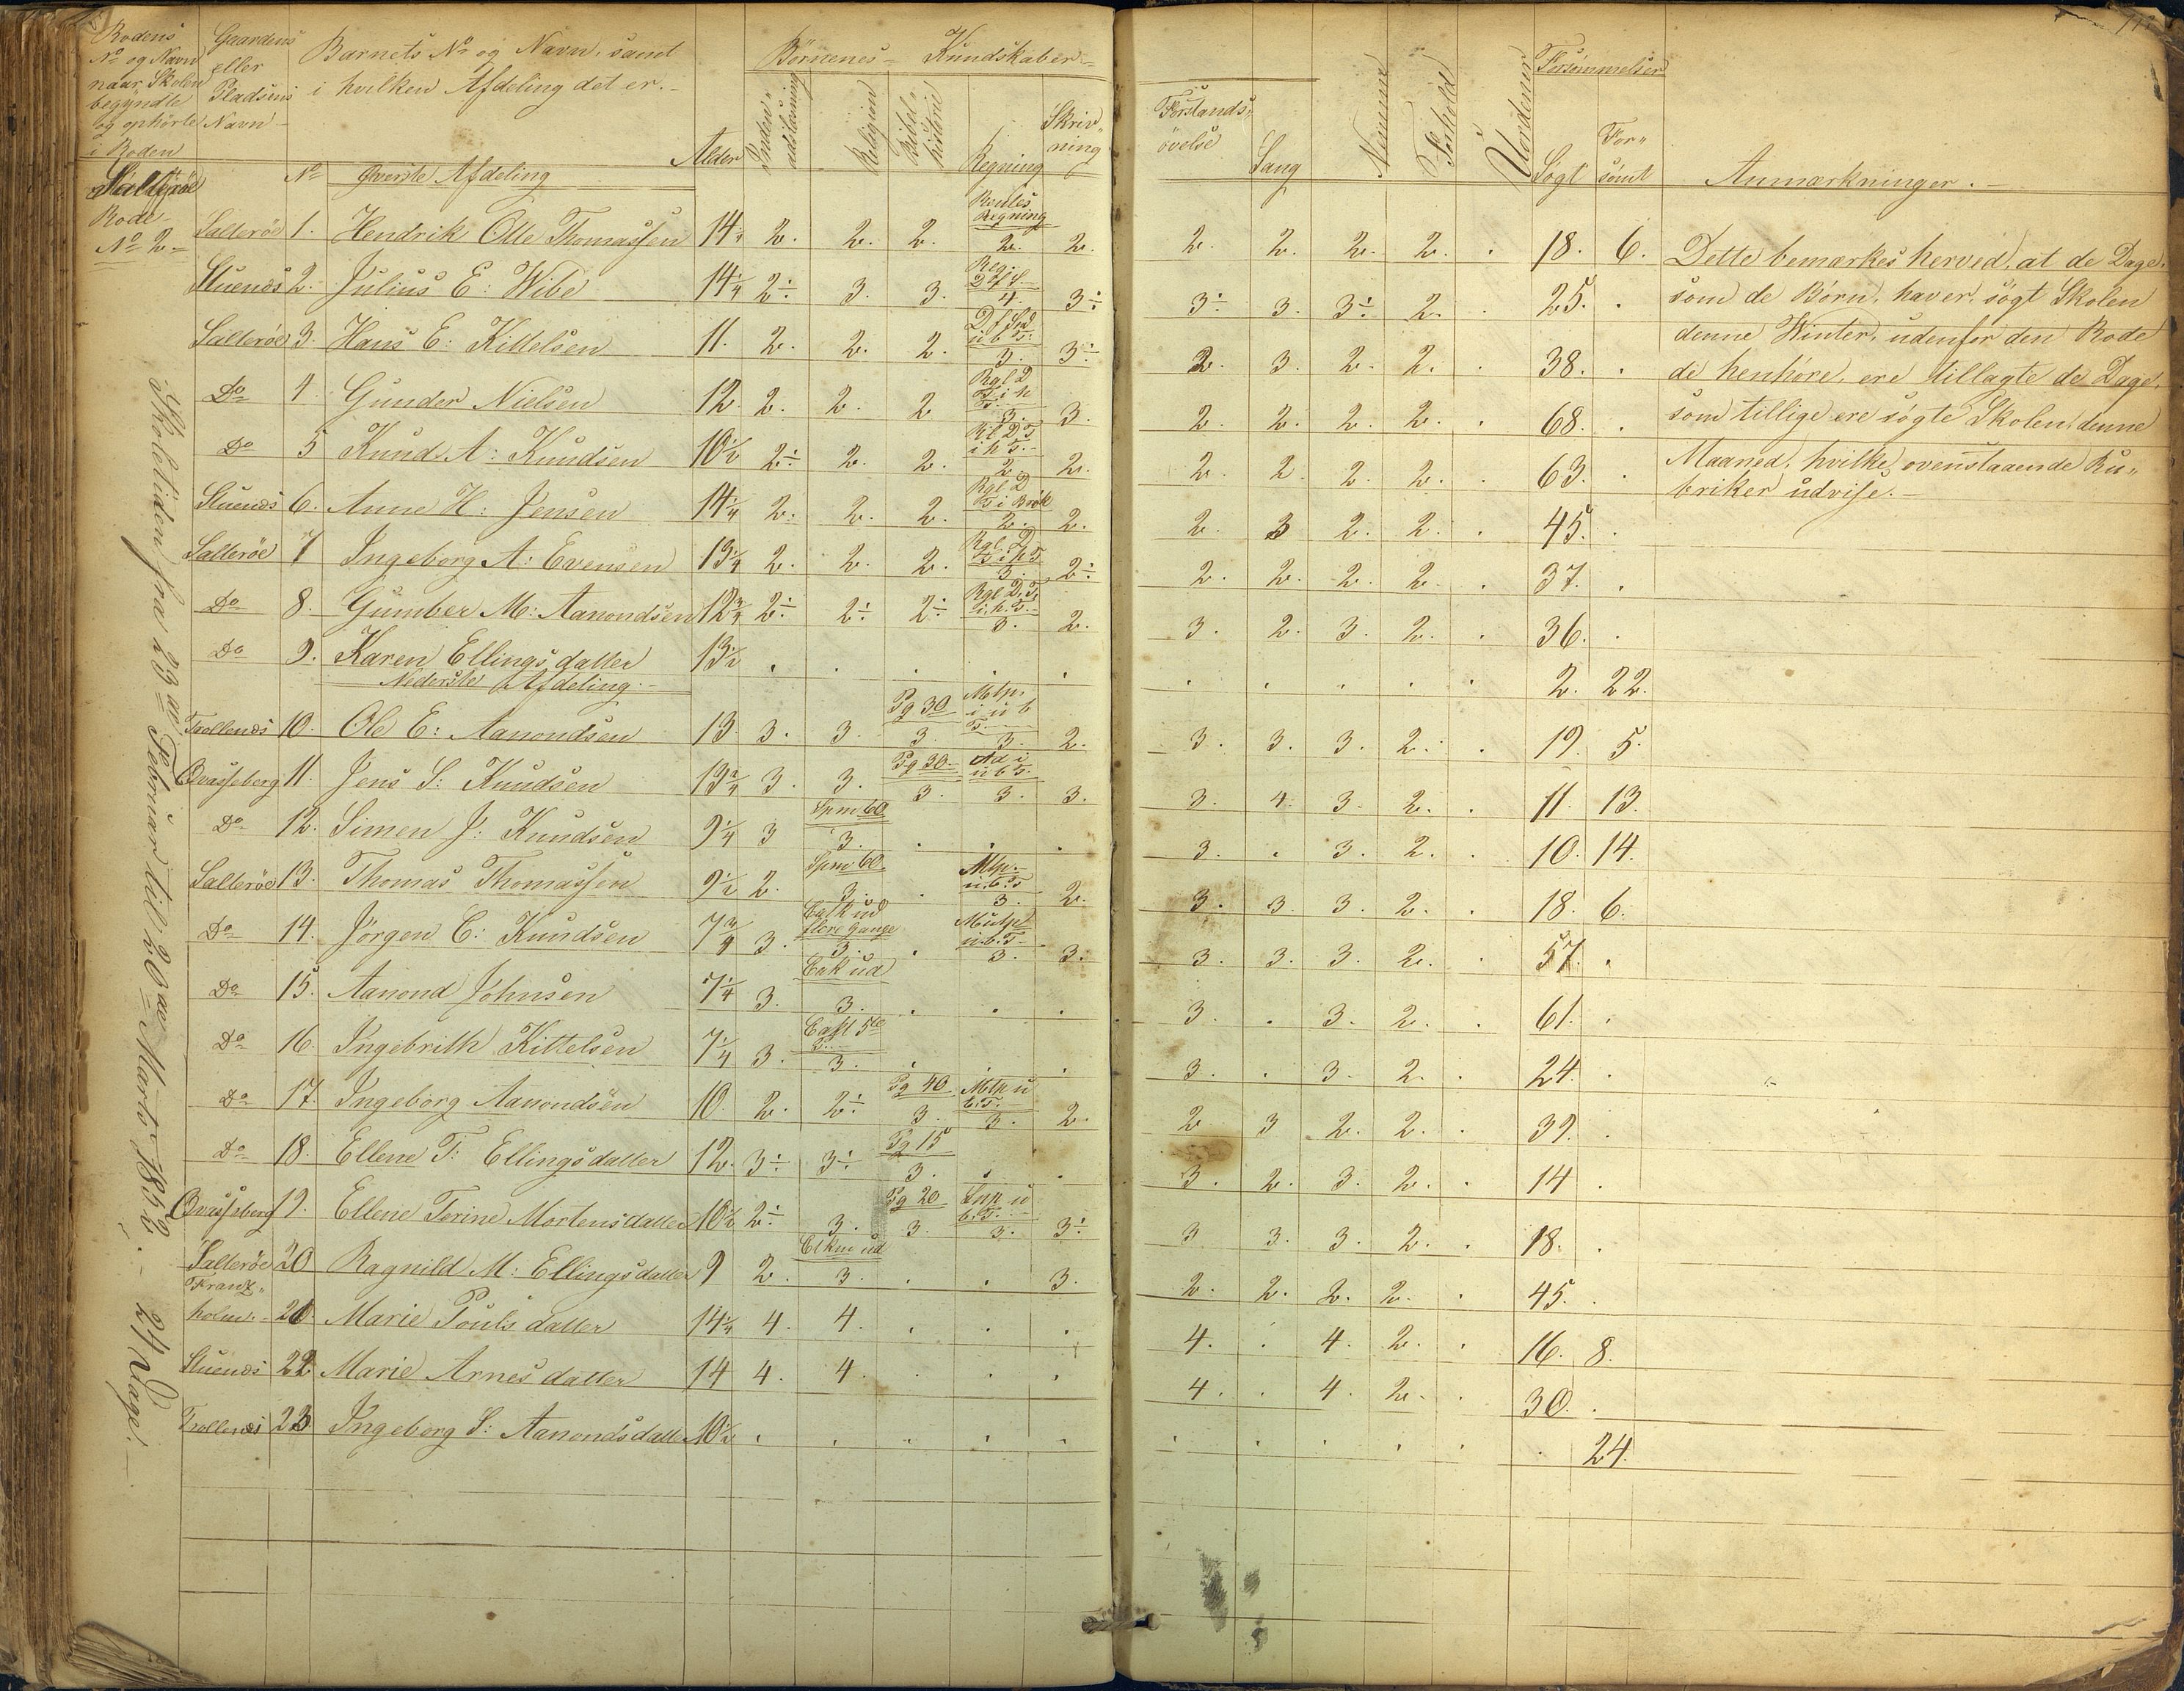 Rodens No og Navn naar Skolen begyndte og ophörte i Roden
Gaardens eller Pladsens Navn
Barnets No og Navn, samt i hvilken Afdeling det er.
Alder
Börnenes Kundskaber
Inden- adslæsning
Religion
Bibel- historie
Regning
Skriv- ning
Forstands- övelse
Sang
Nemme
Forhold
Uordener
Forsömmelser
Sögt
For- sömt
Anmærkninger.
Salteröe Rode No 2
No Överste Afdeling
Salteröe 1. Hendrik Olle Thomassen 14 2. 2. 2. 2. 2. 2. 2. 2. 2. . 18. 6.
Stuenæs 2. Julius E: Wibe 14 1/4 2÷ 3. 3. 4. 3÷ 3÷ 3. 3÷ 2. . 25. .
Salteröe 3. Hans E: Kittelsen 11. 2. 2. 2. 3. 3÷ 2. 3. 2. 2. . 38. .
Do 4 Gunder Nielsen 12. 2. 2. 2 3. 3. 2. 2. 2. 2. . 68. .
Do 5 Knud A: Knudsen 10 1/2 2÷ 2. 2. 2 2. 2. 2. 2. 2. . 63. .
Stuenæs 6. Anne H: Jensen 14 1/4 2. 2. 2. 2. 2. 2. 3 2. 2. . 45. .
Salteröe 7 Ingeborg A: Evensen 13 1/4 2. 2. 2. 3. 2÷ 2. 2. 2. 2. . 37. .
Do 8. Gumber M: Aanondsen 12 3/4 2÷ 2÷ 2÷ 3. 2. 3. 2. 3. 2. . 36. .
Do 9. Karen Ellingsdatter 13 1/2 . . . . . . . . . . 2. 22.
Nederste Afdeling.
Trollenæs 10. Ole E: Aanondsen 13. 3. 3. Pg 30 3. 3. 2. 3. 3. 3. 2. . 19. 5.
Qvasseberg 11. Jens S: Knudsen 13 3/4 3. 3. Pg 30 3. 3. 3. 3. 4. 3. 2. . 11. 13.
Do 12. Simen J: Knudsen 9 1/4 3 Spm 60 3. . . . 3. . 3. 2. . 10. 14.
Salteröe 13. Thomas Thomassen 9 1/2 2. Spm 60 3. . 3. 2. 3. 3. 3. 2. . 18. 6.
Do 14. Jörgen C: Knudsen 7 3/4 3. flere Gange 3. . 3. 3. 3. 3. 3. 2. . 57. .
Do 15. Aanond Johnsen 7 1/4 3. 3. . . . 3. . 3. 2. . 61. .
Do 16. Ingebrith Kittelsen 7 1/4 3. 3. . . . 3. . 3. 2. . 24. .
Do 17. Ingeborg Aanondsen 10. 2. 2÷ Pg 40 3. 3. 2. 2 3 2. 2. . 39. .
Do 18. Ellene T: Ellingsdatter 12. 3÷ 3÷ Pg 15 3. . . 3. 2. 3. 2. . 14 .
Qvasseberg 19. Ellene Terine Mortensdatter 10 1/2 2÷ 3. Pg 20 3. 3. 3÷ 3 3. 3. 2. . 18. .
Salteröe 20 Ragnild M: Ellingsdatter 9 2. 3. . . 3. 2. 2. 2. 2. . 45. .
Franz- holm 21. Marie Poulsdatter 14 1/4 4. 4. . . . 4. . 4. 2. . 16. 8.
Stuenæs 22 Marie Arnesdatter 14 4. 4. . . . 4. . 4. 2. . 30. .
Trollenæs 23 Ingeborg S: Aanondsdatter 10 1/2 . . . . . . . . . . . 24.
Dette bemærkes herved, at de Dage
som de Börn, haver sögt Skolen
denne Winter, udenfor den Rode
de henhöre, ere tillagte de Dage,
som tillige ere sögte Skolen denne
Maaned, hvilke ovenstaaende Ru-
briker udvise.
Skoletiden fra 23de Februar til 20de Marts 1863. 24 Dage.